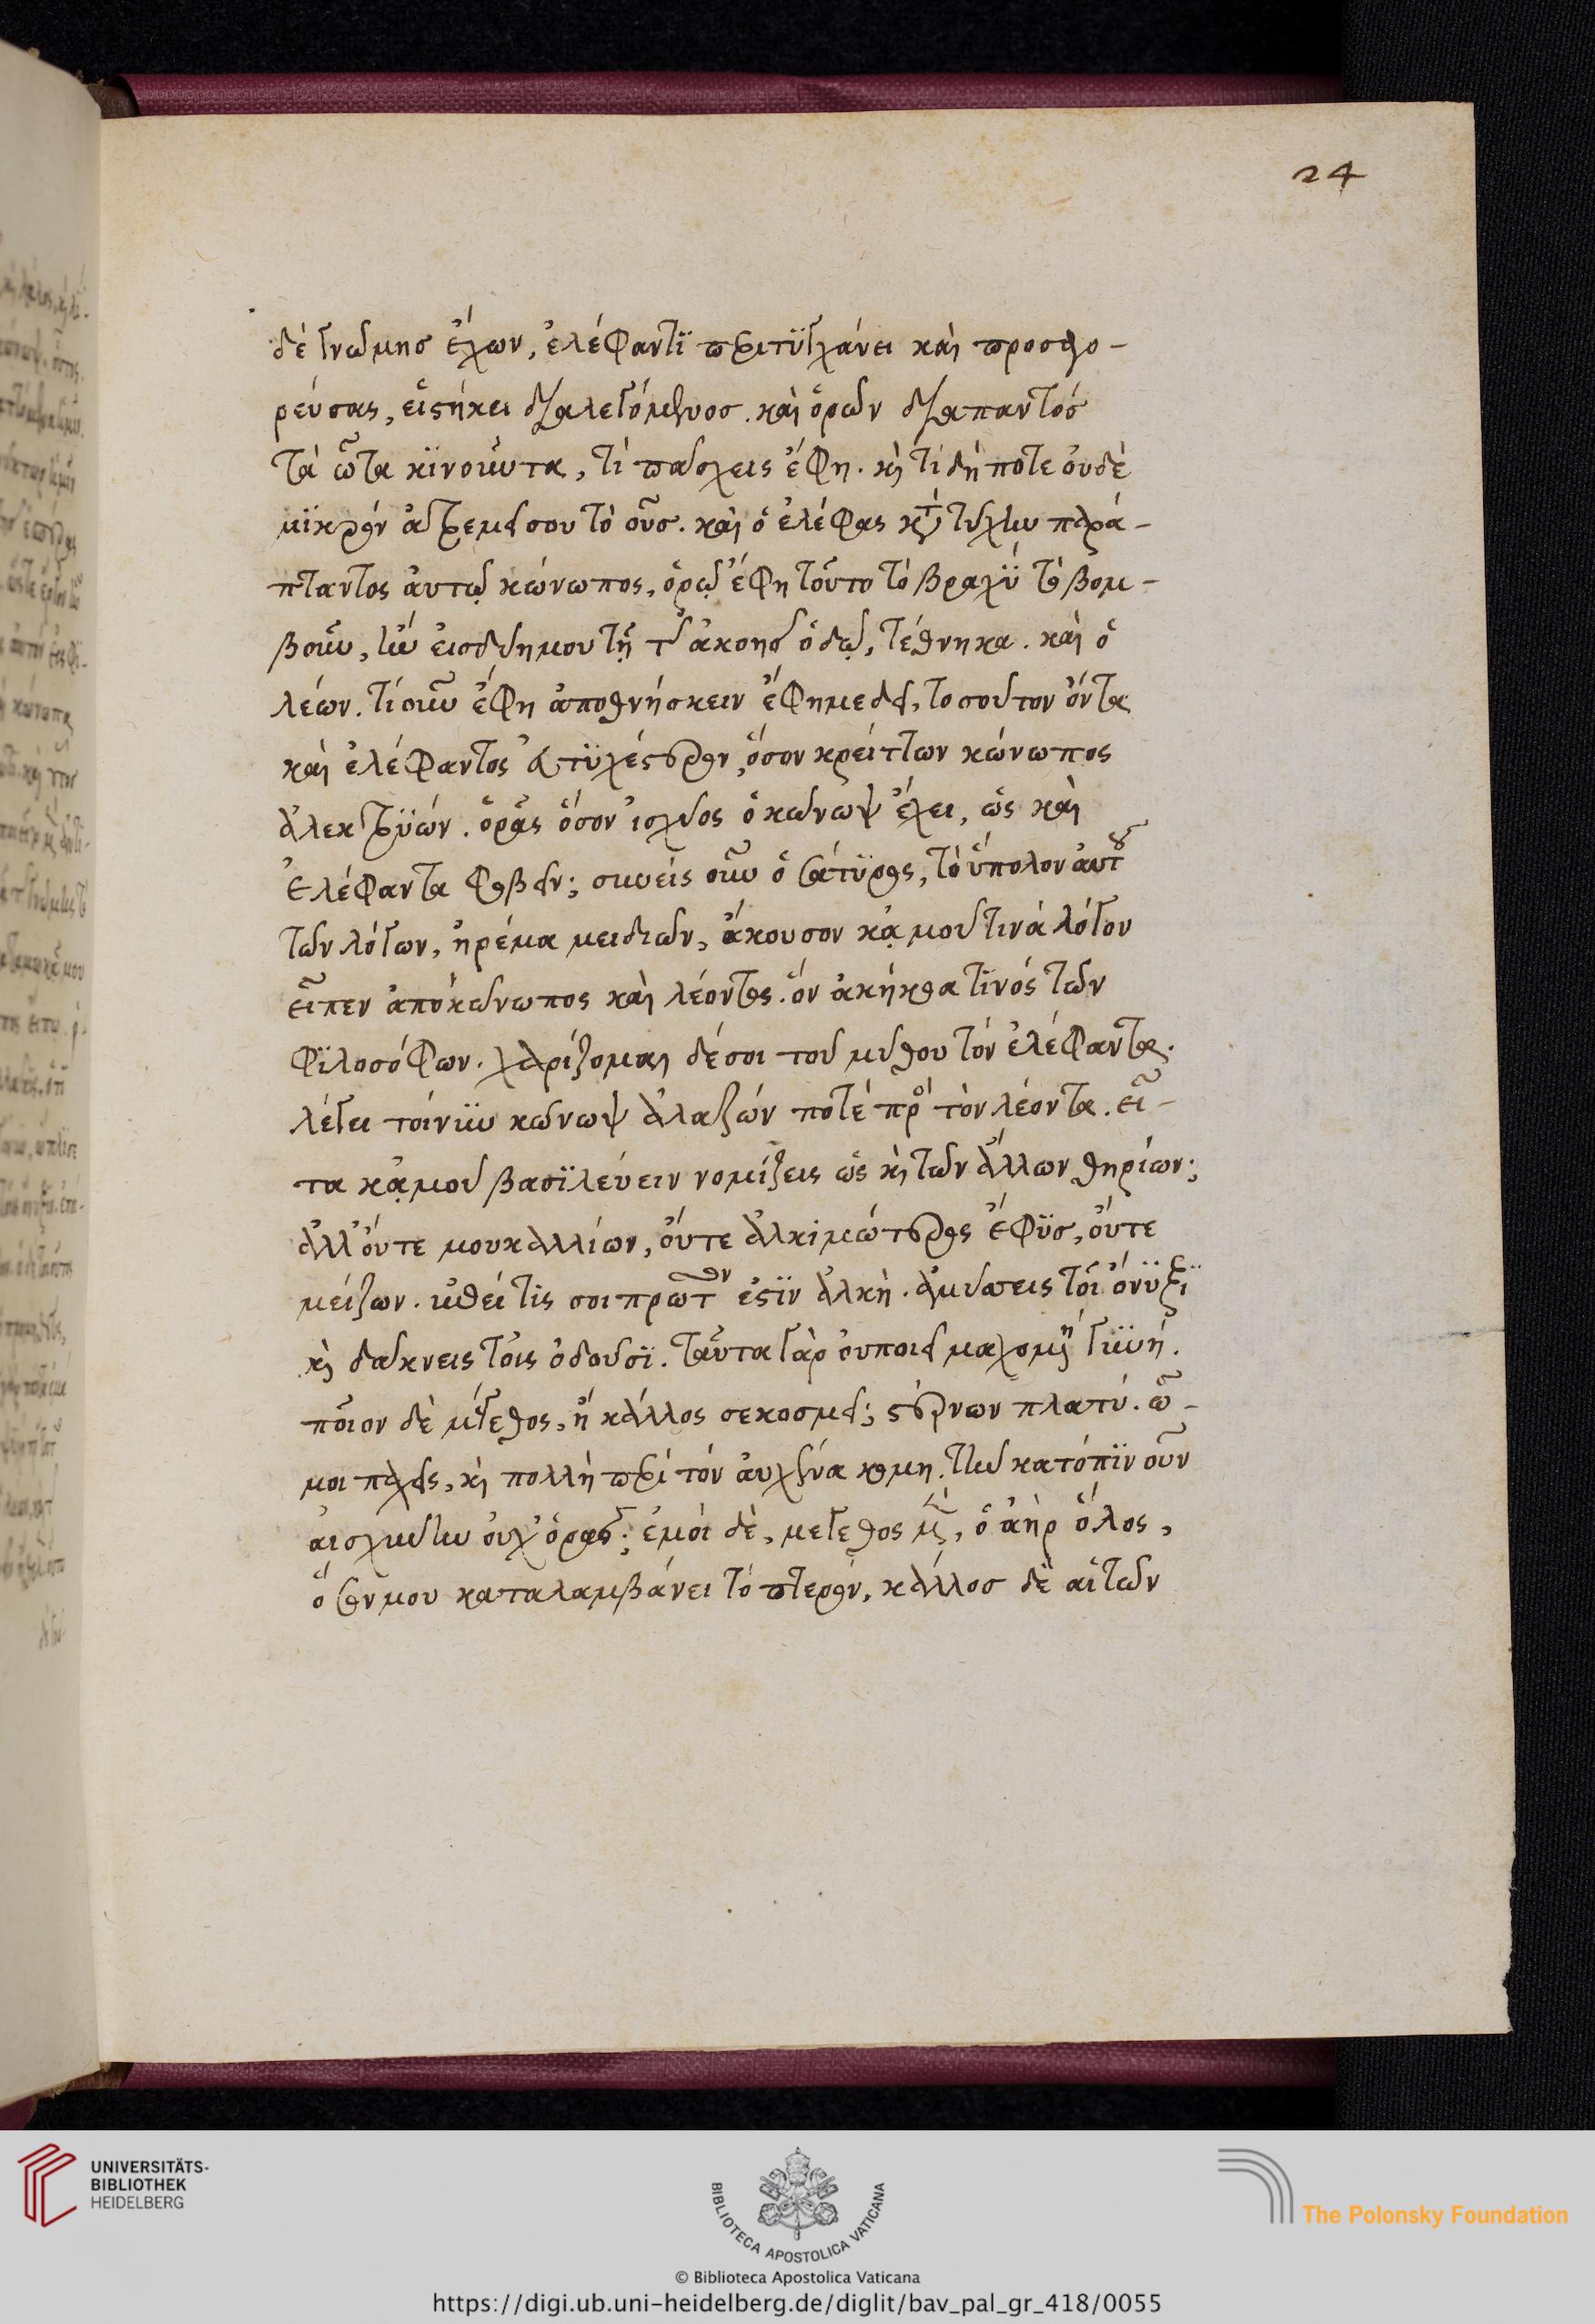 24
δὲ γνώμης ἔχων, ἐλέφαντϊ περιτϋγχάνει καὶ προσαγο-
ρεύσας, εἱστήκει διαλεγόμενος. καὶ ὁρῶν διαπαντὸς
τὰ ὦτα κϊνοῦντα, τί πάσχεις ἔφη. κὶ τί δή ποτε οὐδὲ
μϊκρὸν ἀτρεμεῖ σου τὸ οὖς. καὶ ὁ ἐλέφας κατὰ τύχην παρα-
πτάντος αὐτῷ κώνωπος, ὁρᾷς ἔφη τοῦτο τὸ βραχὺ τὸ βομ-
βοῦν, ἢν εἰσδύῃ μου τῇ τῆς ἀκοῆς ὁδῷ, τέθνηκα. καὶ ὁ
λέων. τί οὖν ἔφη ἀποθνήσκειν ἔφη με δεῖ, τοσοῦτον ὄντα
καὶ ἐλέφαντος εὐτϋχέστερον, ὅσον κρείττων κώνωπος
ἀλεκτρϋών. ὁρᾷς ὅσον ἰσχύος ὁ κώνωψ ἔχει, ὡς καὶ
ἐλέφαντα φοβεῖν; συνεὶς οὖν ὁ Σάτϋρος, τὸ ὕπολον αὐτοῦ
τῶν λόγων, ἠρέμα μειδιῶν, ἄκουσον κᾀμοῦ τινὰ λόγον
εἶπεν ἀπὸ κώνωπος καὶ λέοντος. ὃν ἀκήκοα τϊνὸς τῶν
φϊλοσόφων. χαρίζομαι δέ σοι τοῦ μύθου τὸν ἐλέφαντα.
λέγει τοίνυν κώνωψ ἀλαζών ποτὲ πρὸς τὸν λέοντα. εἶ-
τα κᾀμοῦ βασϊλεύειν νομίζεις ὡς κὶ τῶν ἄλλων θηρίων;
ἀλλ' οὔτε μου καλλίων, οὔτε ἀλκιμώτερος ἔφϋς, οὔτε
μείζων. ἐπεὶ τίς σοι πρῶτον ἐστϊν ἀλκὴ. ἀμύσσεις τοῖς ὄνϋξϊ
κὶ δάκνεις τοῖς ὀδοῦσϊ. ταῦτα γὰρ οὐ ποιεῖ μαχομένη γυνή.
ποῖον δὲ μέγεθος, ἢ κάλλος σε κοσμεῖ; στέρνων πλατύ. ὦ-
μοι παχεῖς, κὶ πολλὴ περὶ τὸν αὐχένα κόμη. τὴν κατόπϊν οὖν
αἰσχύνην οὐχ ὁρᾷς; ἐμοὶ δὲ, μέγεθος μὲν, ὁ ἀὴρ ὅλος,
ὅσον μου καταλαμβάνει τὸ πτερόν, κάλλος δὲ αἱ τῶν
UNIVERSITÄTS-
BIBLIOTHEK
HEIDELBERG
BIBLIOTECA APOSTOLICA VATICANA
The Polonsky Foundation
© Biblioteca Apostolica Vaticana
https://digi.ub.uni-heidelberg.de/diglit/bav_pal_gr_418/0055